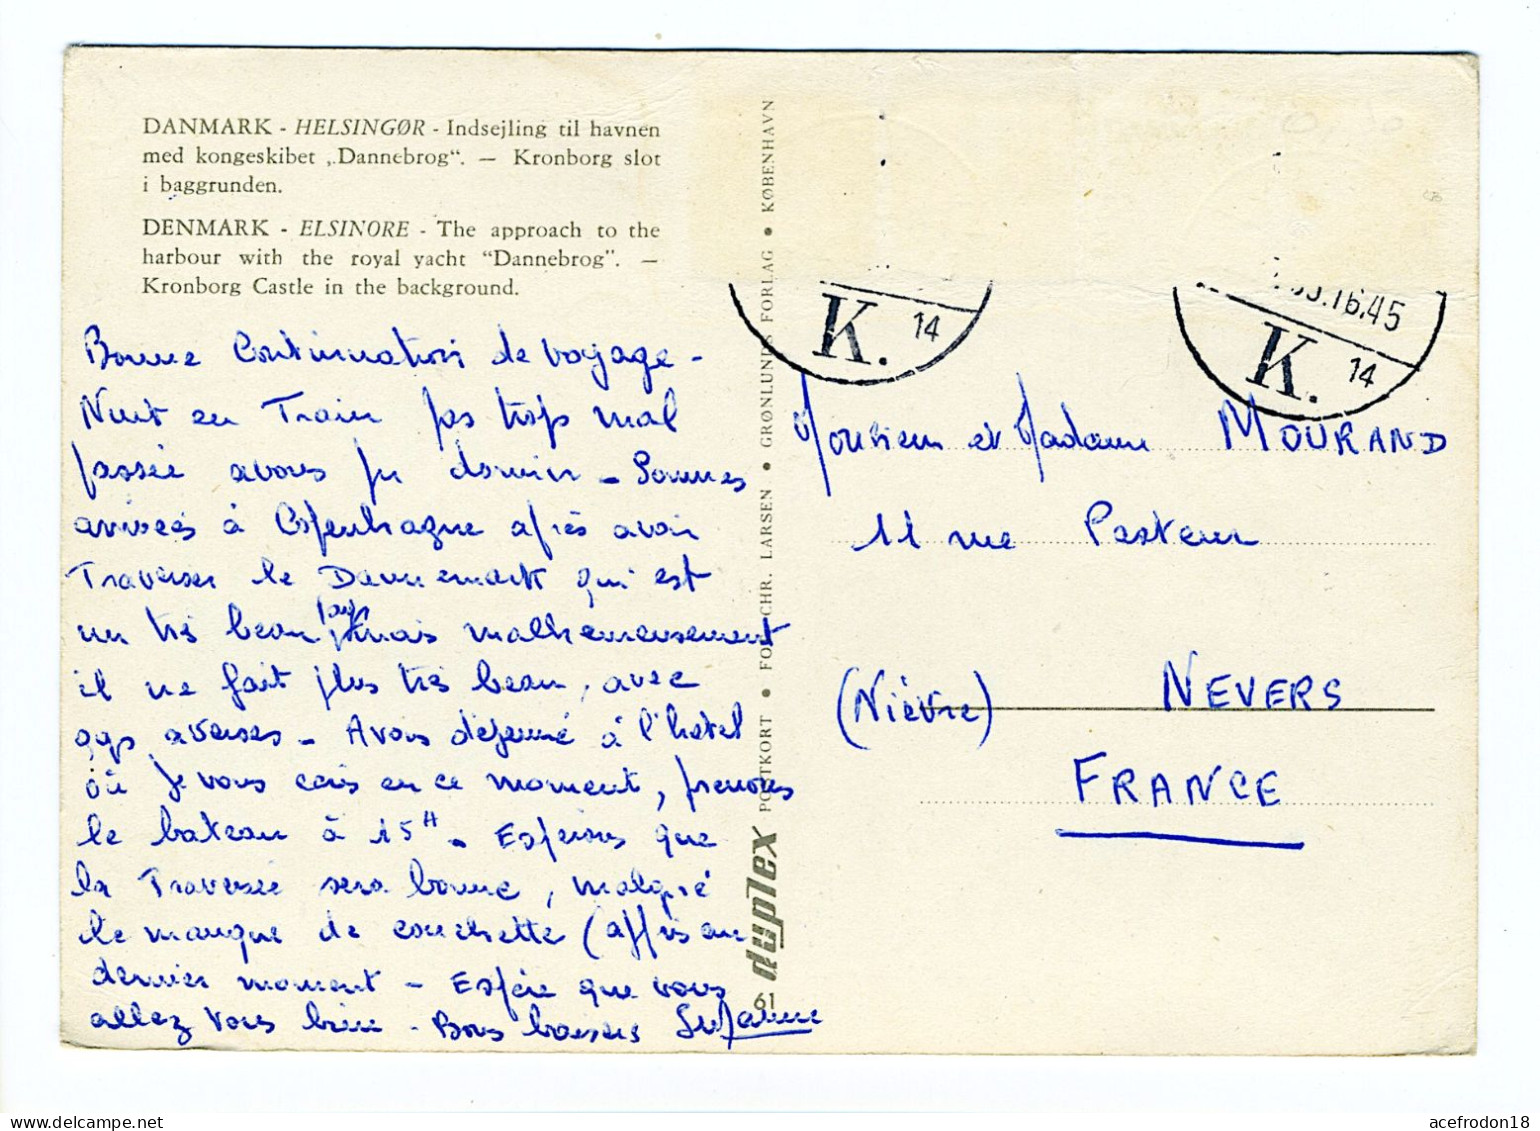 DANMARK - HELSINGØR - Indsejling til havnen
med kongeskibet „Dannebrog“. — Kronborg slot
i baggrunden.
DENMARK - ELSINORE - The approach to the
harbour with the royal yacht “Dannebrog”. —
Kronborg Castle in the background.
Bonne Continuation de voyage -
Nuit en Train pas trop mal
passée avons pu dormir - Sommes
arrivées à Copenhague après avoir
Traverser le Dannemark qui est
un très beau pays mais malheureusement
il ne fait plus très beau, avec
qqs averses - Avons déjeuné à l'hotel
où je vous écris en ce moment, prenons
le bateau à 15H. Espérons que
la Traversée sera bonne, malgré
le manque de couchette (appris au
dernier moment - Espère que vous
allez vous bien - Bons baisers Suzanne
61 duplex POSTKORT • FOT. CHR. LARSEN • GRØNLUNDS FORLAG • KØBENHAVN
K. 14
16.45
K. 14
Monsieur et Madame MOURAND
11 rue Pasteur
(Nièvre) NEVERS
FRANCE
delcampe.net
acefrodon18